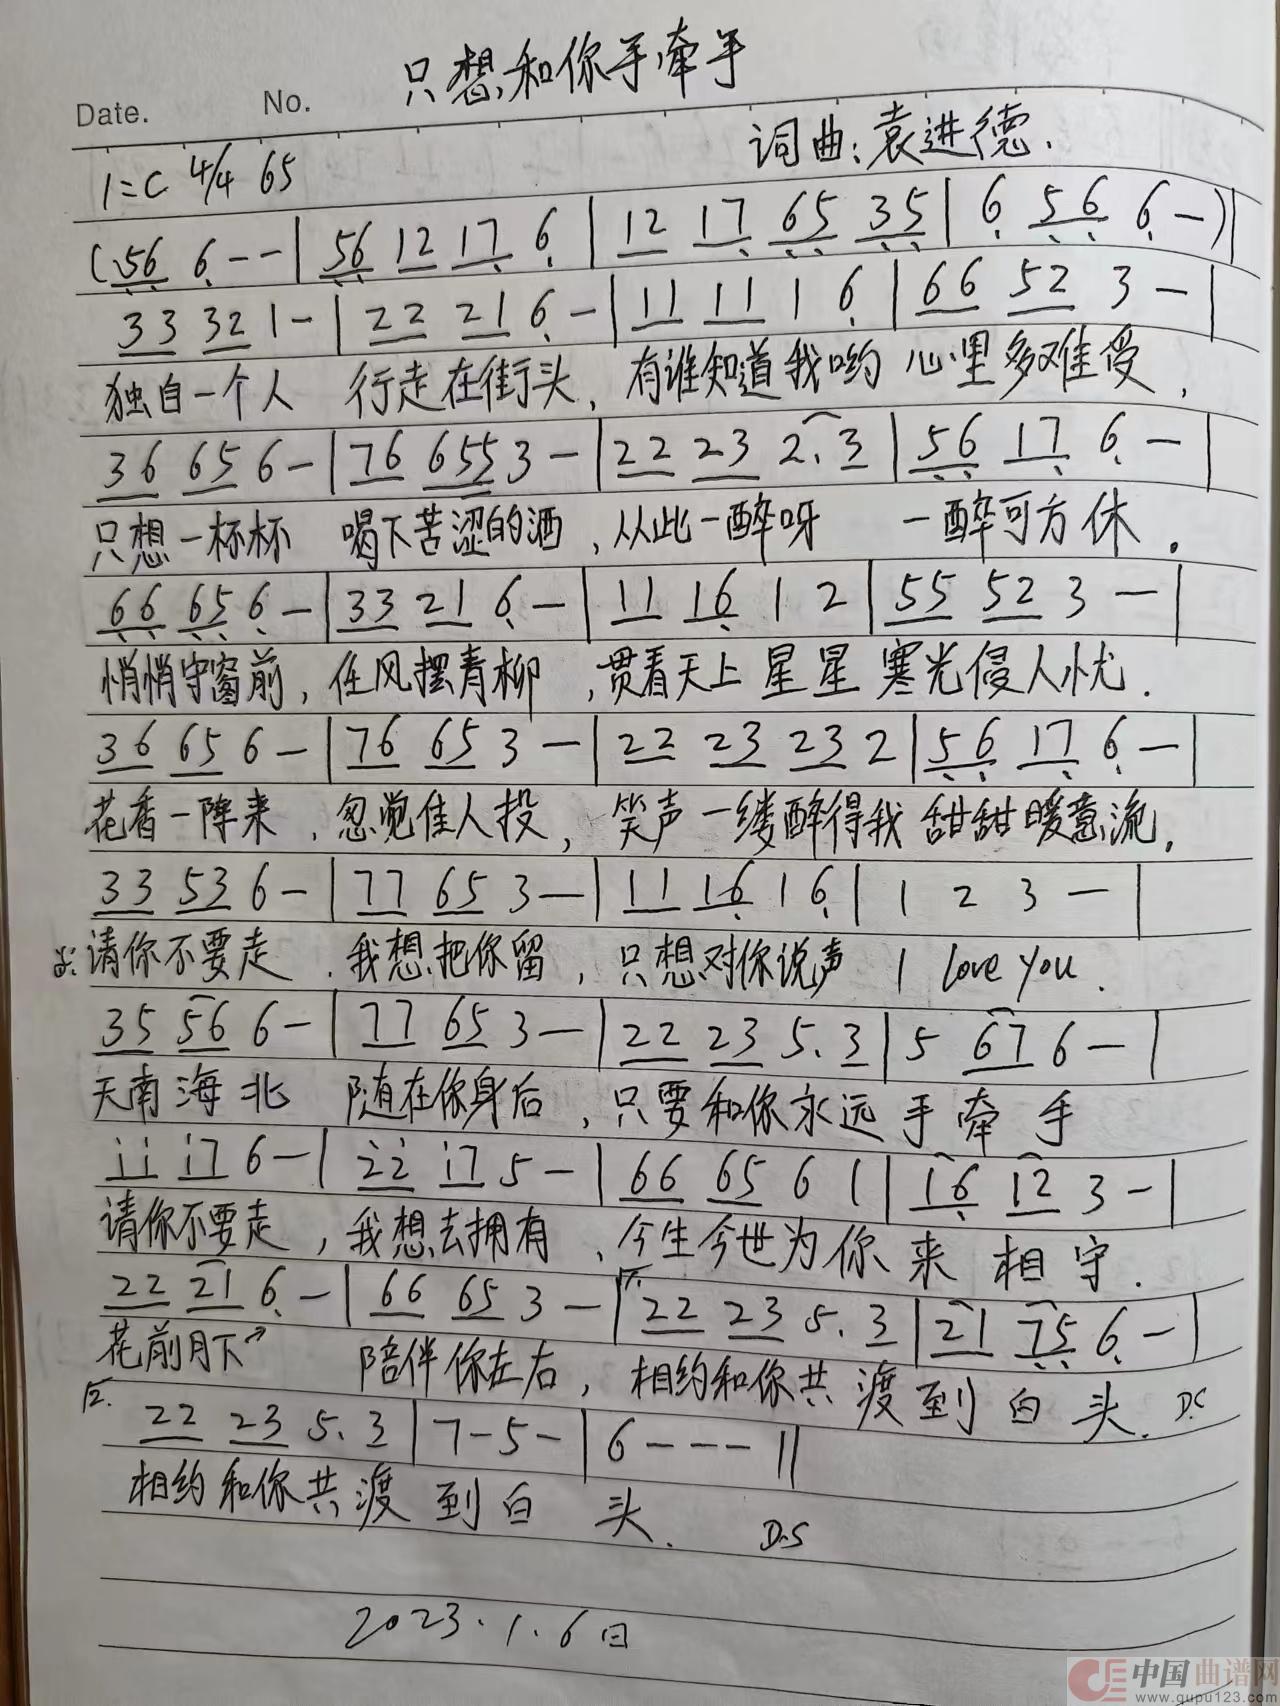 只想和你手牵手
Date. No.
词曲:袁进德.
1=C 4/4 65
(56 6--|56 12 17 6|12 17 65 35|6 56 6-)|
33 32 1-|22 21 6-|11 11 1 6|66 52 3-|
独自一个人 行走在街头,有谁知道我哟 心里多难受,
36 65 6-|76 655 3-|22 23 2.3|56 17 6-|
只想一杯杯 喝下苦涩的酒,从此一醉呀 一醉可方休.
66 65 6-|33 21 6-|11 16 1 2|55 52 3-|
悄悄守窗前,任风摆青柳,贯看天上星星 寒光侵人忧.
36 65 6-|76 65 3-|22 23 23 2|56 17 6-|
花香一阵来,忽觉佳人投,笑声一缕醉得我 甜甜暖意流.
33 53 6-|77 65 3-|11 16 1 6|1 2 3-|
请你不要走.我想把你留,只想对你说声 I love you.
35 56 6-|77 65 3-|22 23 5.3|5 67 6-|
天南海北 随在你身后,只要和你永远手牵手
ii i7 6-|22 i7 5-|66 65 6 1|16 12 3-|
请你不要走,我想去拥有,今生今世为你来相守.
22 21 6-|66 65 3-|1.22 23 5.3|21 75 6-|
花前月下 陪伴你左右,相约和你共渡到白头. D.C
2. 22 23 5.3|7-5-|6---||
相约和你共渡到白头. D.S
2023.1.6日
中国曲谱网
www.gupu123.com